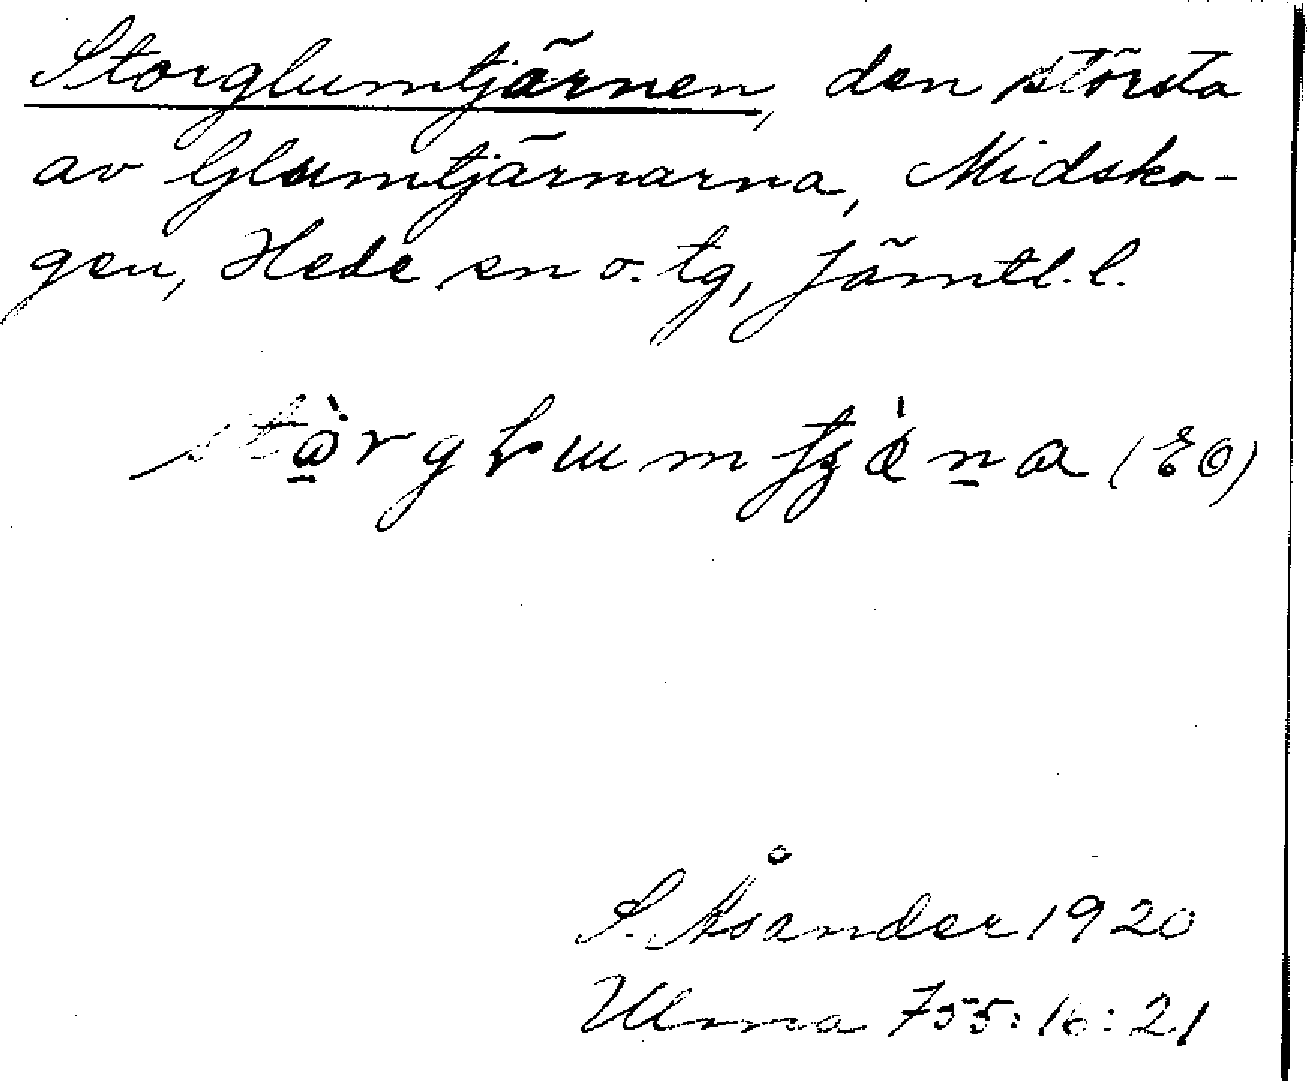 Storglumtjärnen, den största
av Glumtjärnarna, Midsko-
gen, Hede sn o. tg, Jämtl. l.
(EO)
S. Åsander 1920
Ulma 755:16:21